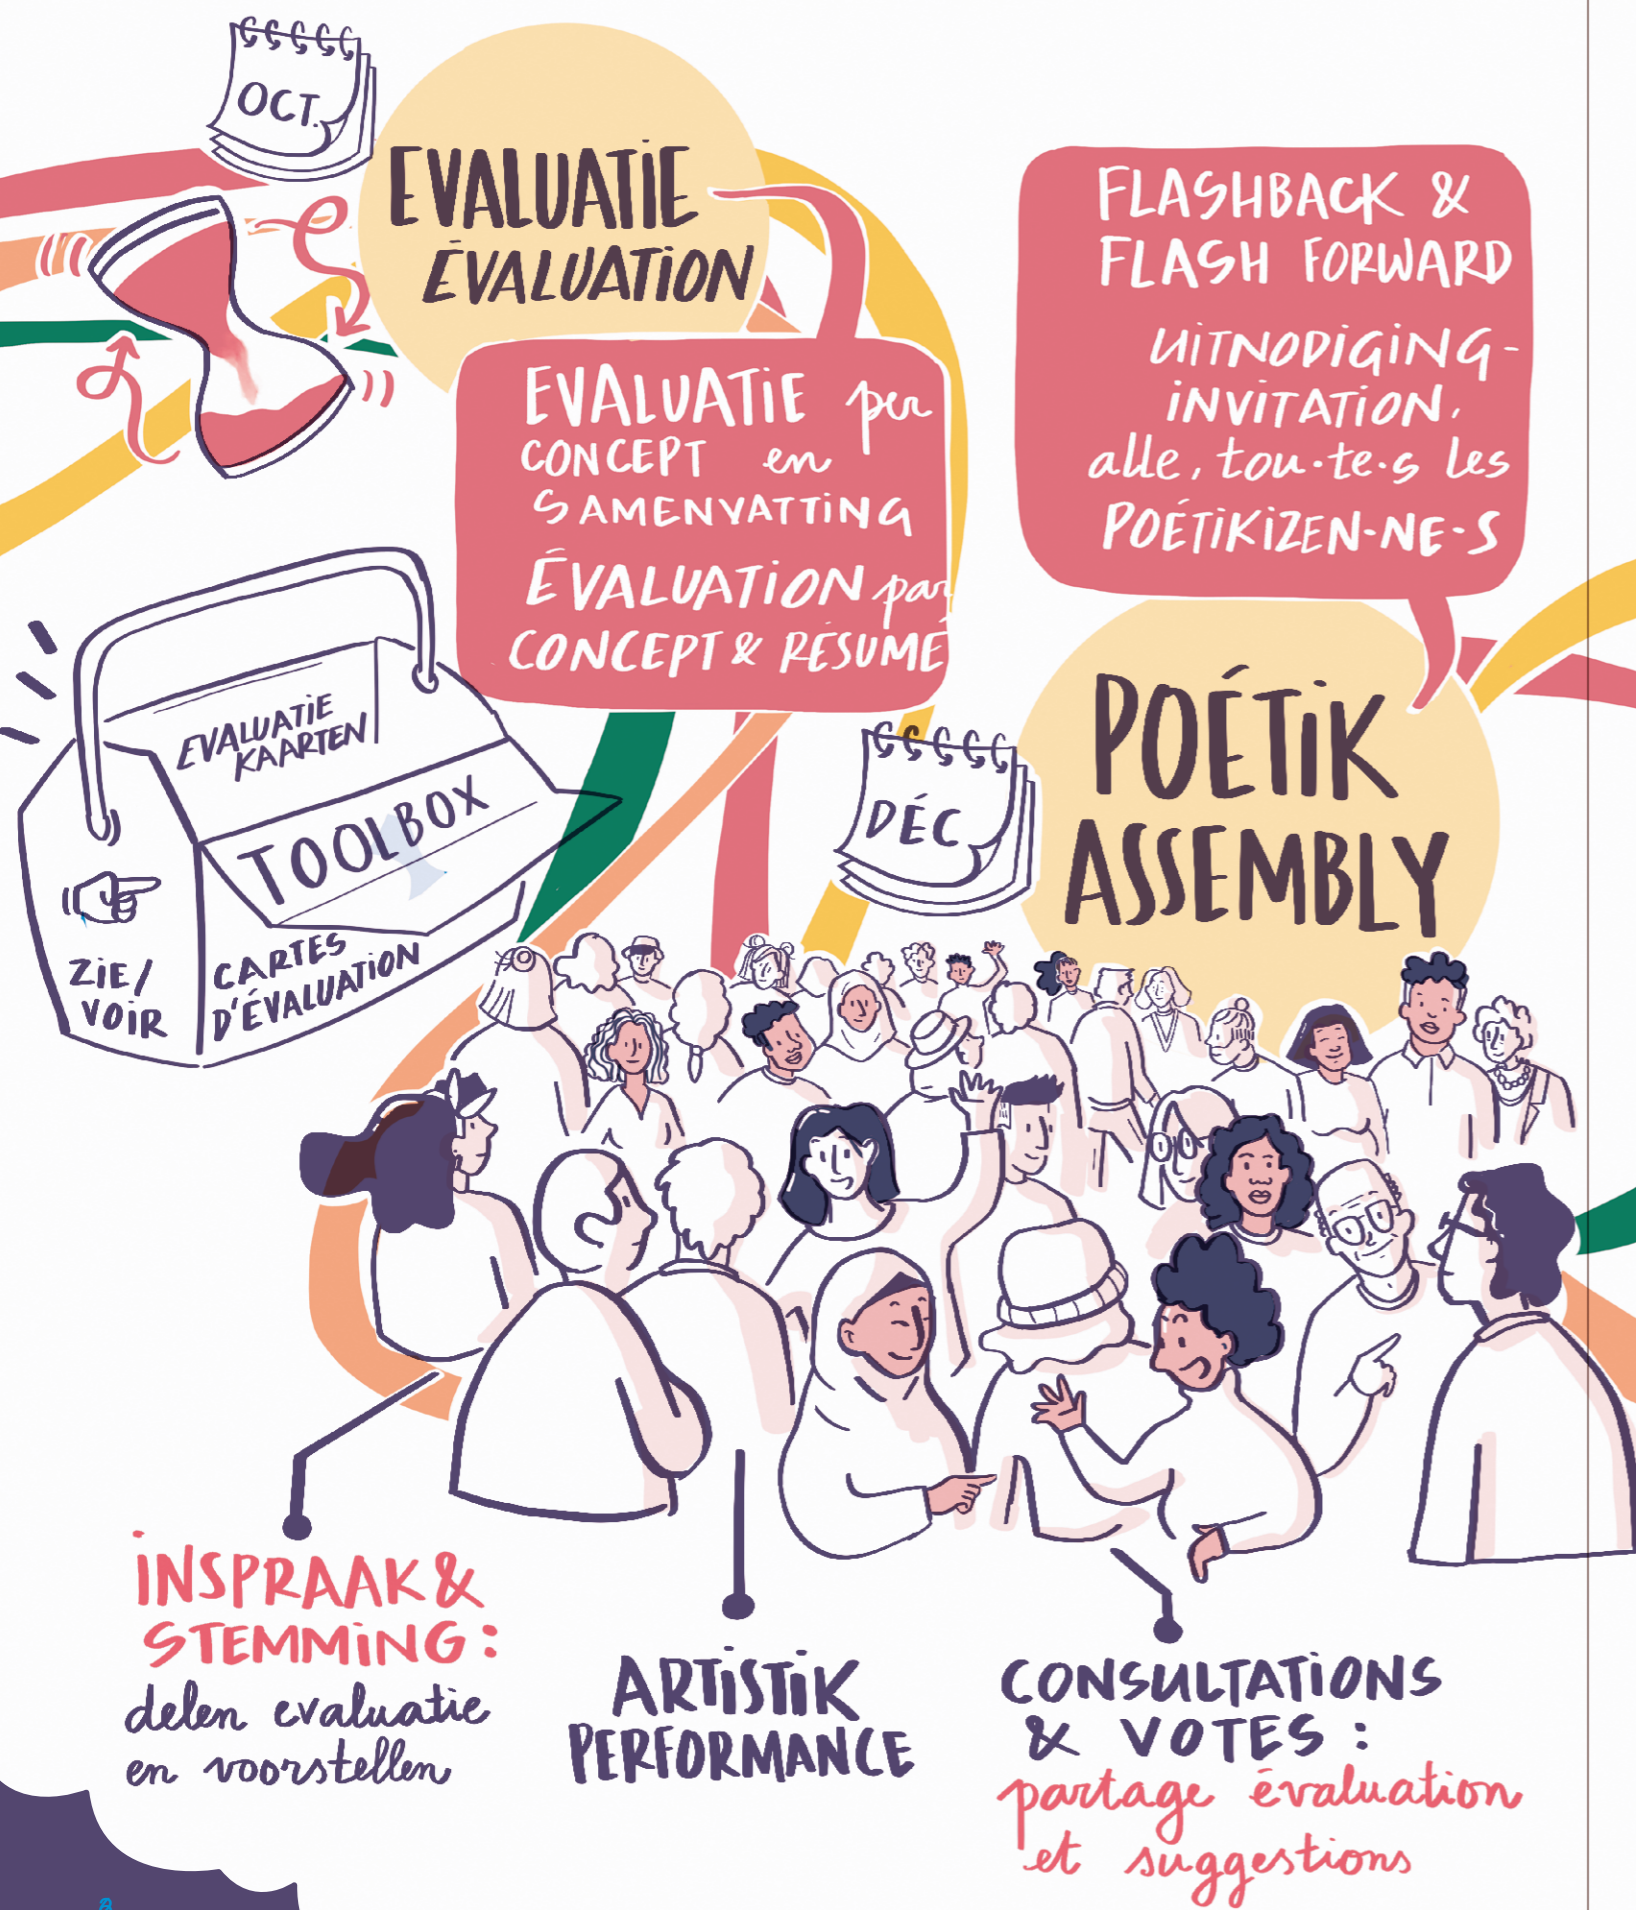 OCT.
EVALUATIE
ÉVALUATION
EVALUATIE per
CONCEPT en
SAMENVATTING
ÉVALUATION par
CONCEPT & RÉSUMÉ
FLASHBACK &
FLASH FORWARD
UITNODIGING-
INVITATION,
alle, tou·te·s les
POÉTIKIZEN·NE·S
EVALUATIE
KAARTEN
TOOLBOX
ZIE/
VOIR
CARTES
D'ÉVALUATION
DÉC
POÉTIK
ASSEMBLY
INSPRAAK &
STEMMING:
delen evaluatie
en voorstellen
ARTISTIK
PERFORMANCE
CONSULTATIONS
& VOTES:
partage évaluation
et suggestions